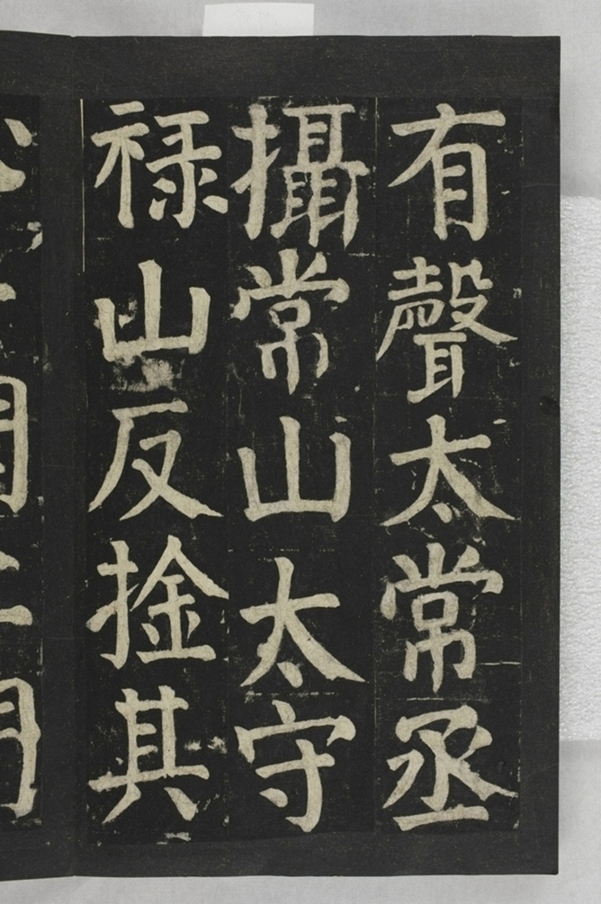 有聲太常丞
攝常山太守
禄山反捦其